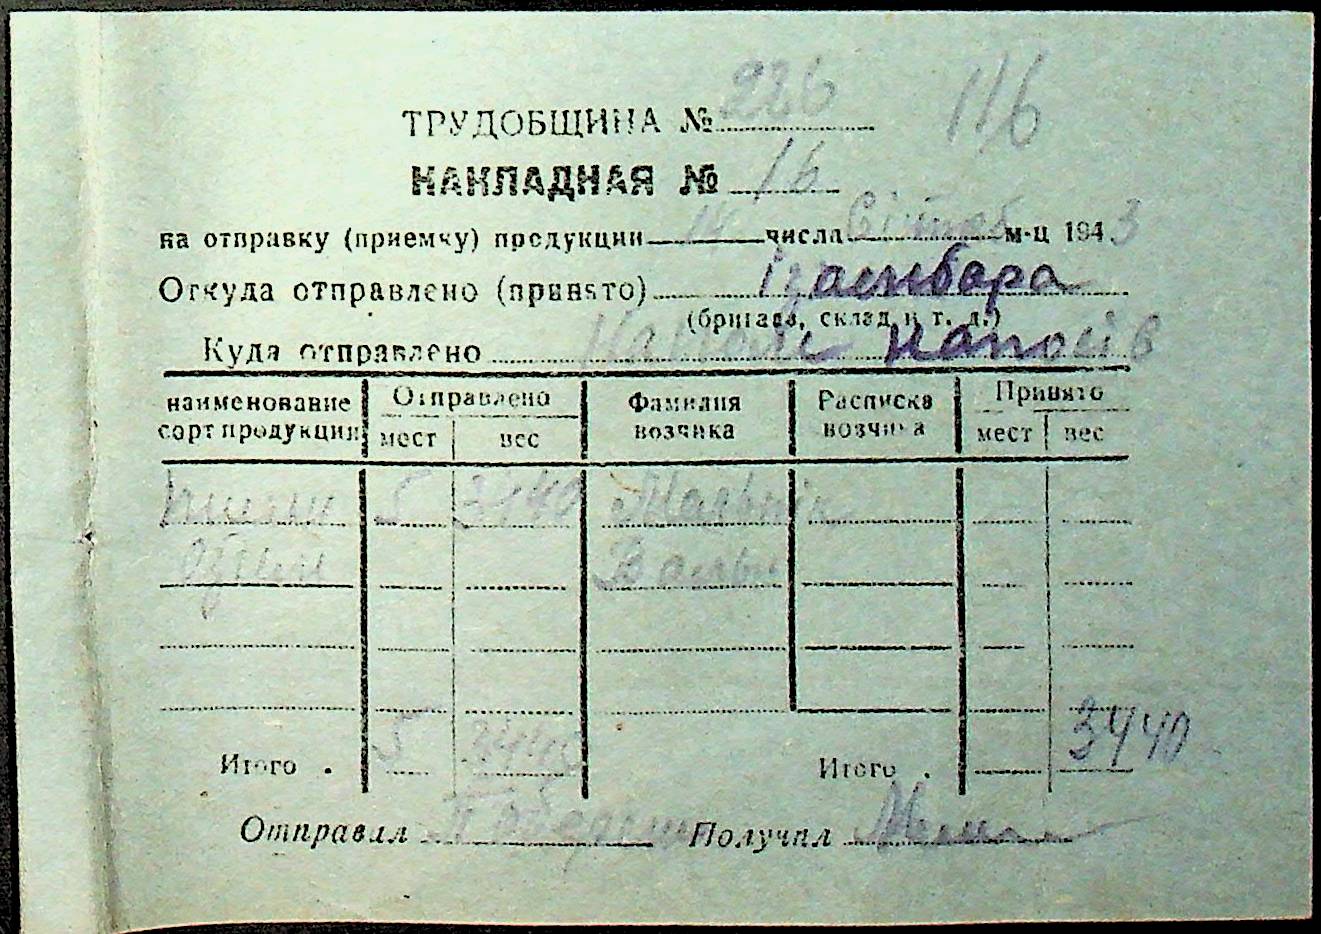 ТРУДОБЩИНА № 226 116
НАКЛАДНАЯ № 16
на отправку (приемку) продукции 14 числа м-ц 1943
Откуда отправлено (принято) Із амбара
(бригада, склад и т. д.)
Куда отправлено
наименование сорт продукции Отправлено мест вес Фамилия возчика Расписка возчика Принято мест вес
5 3440 Мальнік
озими
Итого . 5 3440 Итого . 3440
Отправил Получил